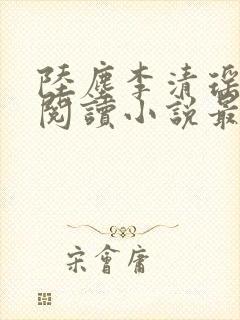 陸塵李清瑤
閱讀小說最
宋會庸